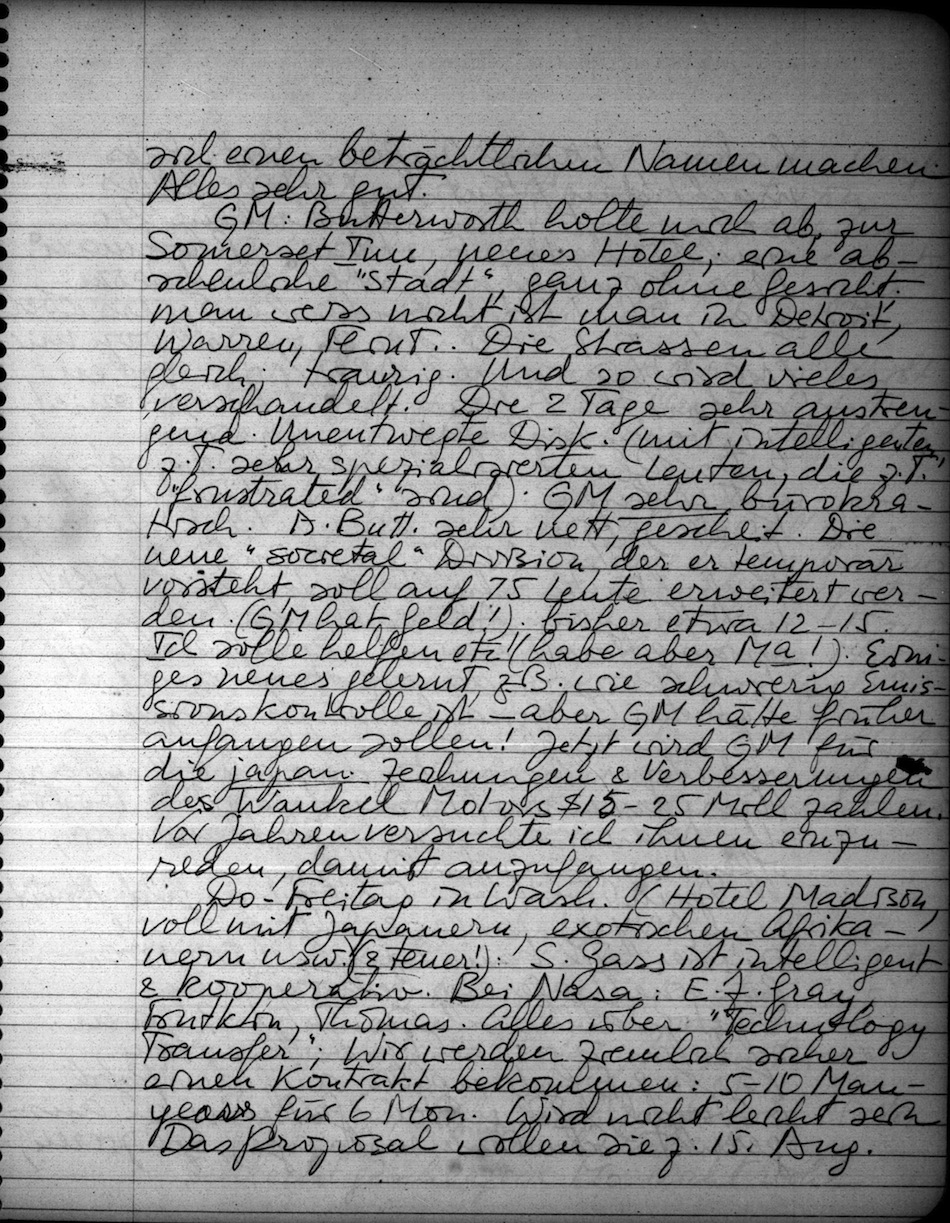 sich einen beträchtlichen Namen machen.
Alles sehr gut.
GM: Butterworth holte mich ab, zur
Somerset Inn, neues Hotel; eine ab-
scheuliche "Stadt", ganz ohne Gesicht.
man weiss nicht ist man in Detroit,
Warren, Flint.. Die Strassen alle
gleich; traurig. Und so wird vieles
verschandelt. Die 2 Tage sehr anstren-
gend. Unentwegte Disk. (mit intelligenten,
z.T. sehr spezialisierten Leuten, die z.T.
"frustrated" sind). GM sehr bürokra-
tisch. A. Butt. sehr nett, gescheit. Die
neue "societal" Division, der er temporär
vorsteht, soll auf 75 Leute erweitert wer-
den. (GM hat Geld!). bisher etwa 12-15.
Ich solle helfen etc! (habe aber Ma!). Eini-
ges neues gelernt, zB. wie schwierig Emis-
sionskontrolle ist – aber GM hätte früher
anfangen sollen! Jetzt wird GM für
die japan. Zeichnungen & Verbesserungen
des Wankel Motors $15-25 Mill zahlen.
Vor Jahren versuchte ich ihnen einzu-
reden, damit anzufangen.
Do-Freitag in Wash. (Hotel Madison,
voll mit Japanern, exotischen Afrika-
nern usw. (& teuer!). S. Gass ist intelligent
& kooperativ. Bei Nasa: E.Z. Gray,
Thomas. Alles über "Technology
Transfer"; Wir werden ziemlich sicher
einen Kontrakt bekommen: 5-10 Man-
years für 6 Mon. Wird nicht leicht sein
Das Proposal wollen sie z. 15. Aug.